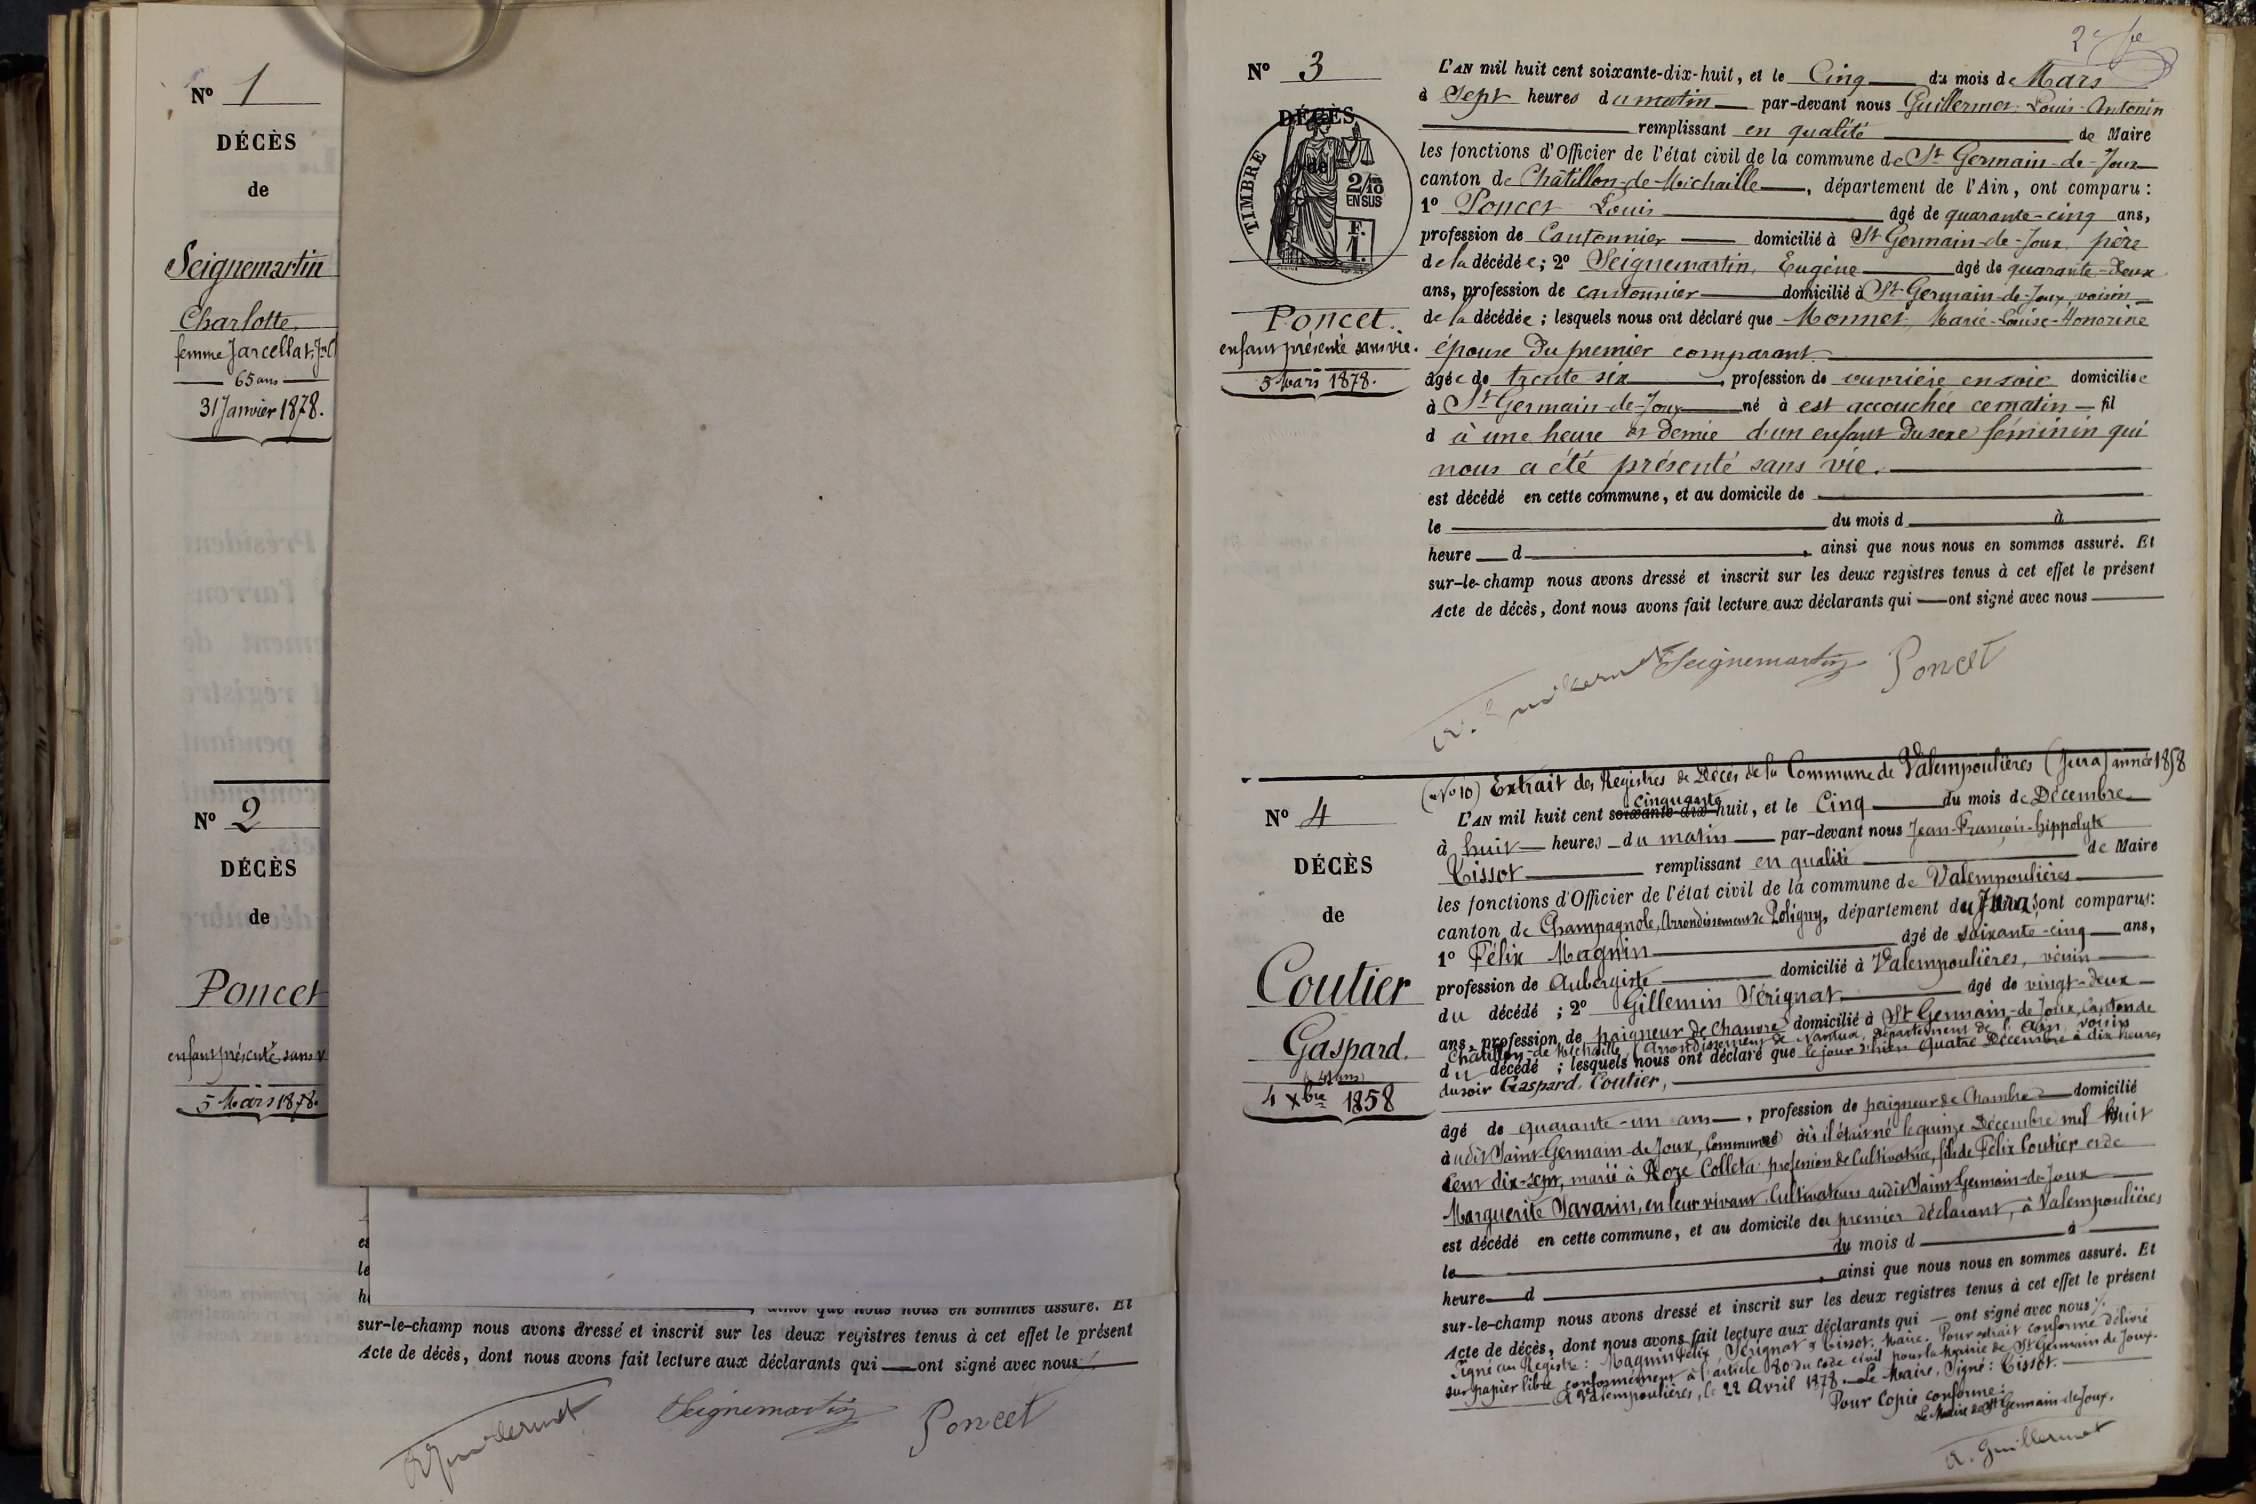 Nº 1
DÉCÈS
de
Seignemartin
Charlotte
femme Jarcellat
65 ans
31 Janvier 1878.
Nº 2
DÉCÈS
de
Poncet
enfant présenté sans v
5 Mars 1878.
es
le
he
, ainsi que nous nous en sommes assuré. Et
sur-le-champ nous avons dressé et inscrit sur les deux registres tenus à cet effet le présent
Acte de décès, dont nous avons fait lecture aux déclarants qui ont signé avec nous
Guillermet Seignemartin Poncet
2e
Nº 3
DÉCÈS
de
TIMBRE
2/10
EN SUS
F.
1.
Poncet.
enfant présenté sans vie.
5 Mars 1878.
L'AN mil huit cent soixante-dix-huit, et le Cinq du mois de Mars
à Sept heures du matin par-devant nous Guillermet Louis-Antonin
remplissant en qualité de Maire
les fonctions d'Officier de l'état civil de la commune de St Germain-de-Joux
canton de Châtillon-de-Michaille, département de l'Ain, ont comparu :
1º Poncet Louis âgé de quarante-cinq ans,
profession de Cantonnier domicilié à St Germain-de-Joux, père
de la décédée ; 2º Seignemartin, Eugène âgé de quarante-deux
ans, profession de cantonnier domicilié à St Germain-de-Joux, voisin
de la décédée ; lesquels nous ont déclaré que Monnet, Marie-Louise-Honorine
épouse du premier comparant.
âgée de trente six, profession de ouvrière en soie domiciliée
à St Germain-de-Joux né à est accouchée ce matin fil
d à une heure et demie d'un enfant du sexe féminin qui
nous a été présenté sans vie.
est décédé en cette commune, et au domicile de
le du mois d à
heure d, ainsi que nous nous en sommes assuré. Et
sur-le-champ nous avons dressé et inscrit sur les deux registres tenus à cet effet le présent
Acte de décès, dont nous avons fait lecture aux déclarants qui ont signé avec nous
A. Guillermet Seignemartin Poncet
Nº 4
DÉCÈS
de
Coutier
Gaspard.
(41 ans)
4 Xbre 1858
(Nº 10) Extrait des Registres de Décès de la Commune de Valempoulières (Jura) année 1858
cinquante
L'AN mil huit cent soixante-dix-huit, et le Cinq du mois de Décembre
à huit heures du matin par-devant nous Jean-François-hippolyte
Tissot remplissant en qualité de Maire
les fonctions d'Officier de l'état civil de la commune de Valempoulières
canton de Champagnole, Arrondissement de Poligny, département du Jura, sont comparus :
1º Félix Magnin âgé de soixante-cinq ans,
profession de Aubergiste domicilié à Valempoulières, voisin
du décédé ; 2º Gillemin Sérignat âgé de vingt-deux
ans, profession de peigneur de Chanvre domicilié à St Germain-de-Joux, Canton de
Châtillon-de-Michaille, (Arrondissement de Nantua, département de l'Ain, voisin
du décédé ; lesquels nous ont déclaré que le jour d'hier quatre Décembre à dix heures
du soir Gaspard Coutier,
âgé de quarante-un ans, profession de peigneur de Chambre domicilié
audit Saint-Germain-de-Joux, Commune où il était né le quinze Décembre mil huit
Cent dix-sept, marié à Roze Colleta profession de Cultivatrice, fils de Félix Coutier et de
Marguerite Savarin, en leur vivant Cultivateurs audit Saint Germain-de-Joux
est décédé en cette commune, et au domicile du premier déclarant, à Valempoulières
le du mois d à
heure d, ainsi que nous nous en sommes assuré. Et
sur-le-champ nous avons dressé et inscrit sur les deux registres tenus à cet effet le présent
Acte de décès, dont nous avons fait lecture aux déclarants qui ont signé avec nous
Signé au Registre : Magnin Félix, Sérignat & Tissot, Maire. Pour extrait conforme délivré
sur papier libre conformément à l'article 80 du code civil pour la Mairie de St Germain de Joux.
A Valempoulières, le 22 Avril 1878. Le Maire, Signé : Tissot.
Pour Copie conforme :
Le Maire de St Germain-de-Joux.
A. Guillermet